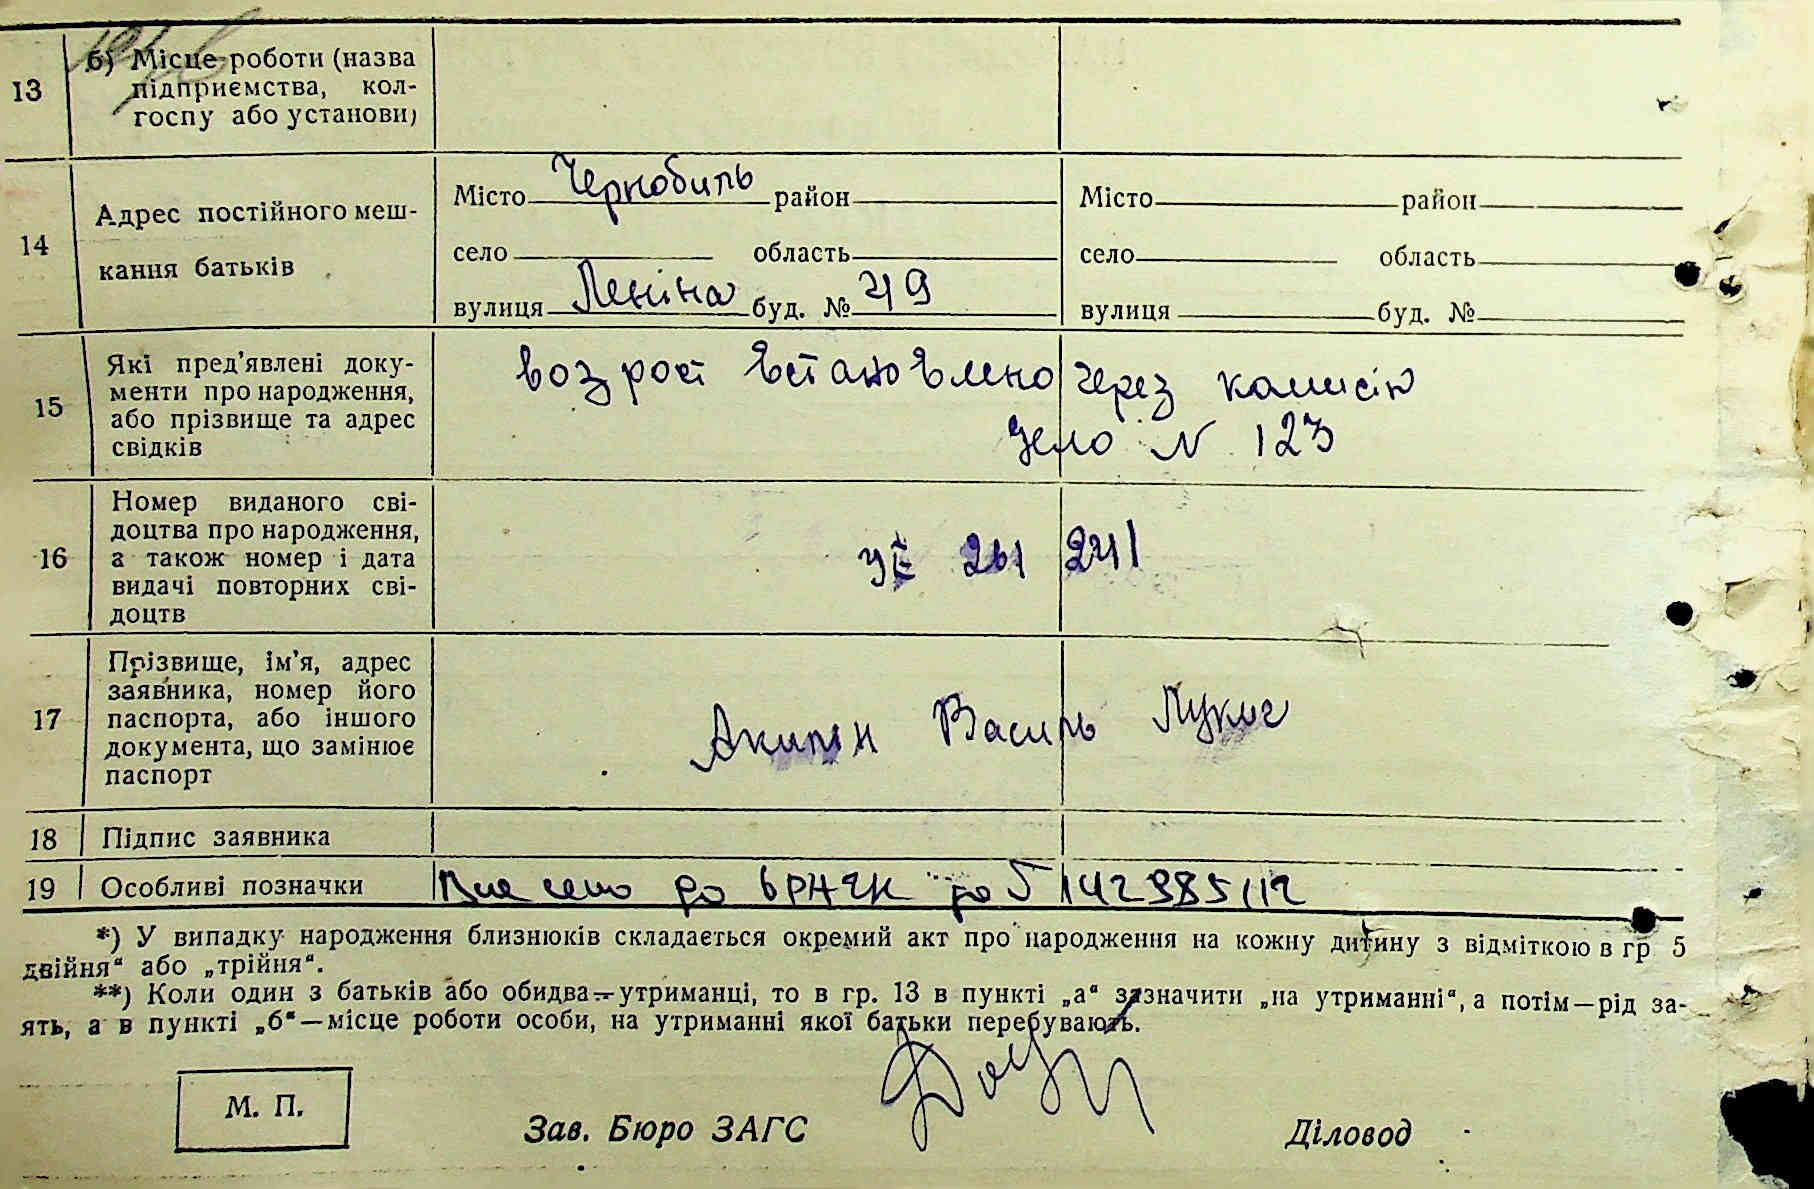 13
б) Місце роботи (назва
підприємства, кол-
госпу або установи)
14
Адрес постійного меш-
кання батьків
Місто Чернобиль район
село область
вулиця Леніна буд. № 49
Місто район
село область
вулиця буд. №
15
Які пред'явлені доку-
менти про народження,
або прізвище та адрес
свідків
возрост встановлено через комисію
Дело N 123
16
Номер виданого сві-
доцтва про народження,
а також номер і дата
видачі повторних сві-
доцтв
261 241
17
Прізвище, ім'я, адрес
заявника, номер його
паспорта, або іншого
документа, що замінює
паспорт
Василь
18
Підпис заявника
19
Особливі позначки
Внесено до
*) У випадку народження близнюків складається окремий акт про народження на кожну дитину з відміткою в гр 5
двійня" або „трійня".
**) Коли один з батьків або обидва—утриманці, то в гр. 13 в пункті „а" зазначити „на утриманні", а потім—рід за-
ять, а в пункті „б"—місце роботи особи, на утриманні якої батьки перебувають.
М. П.
Зав. Бюро ЗАГС
Діловод